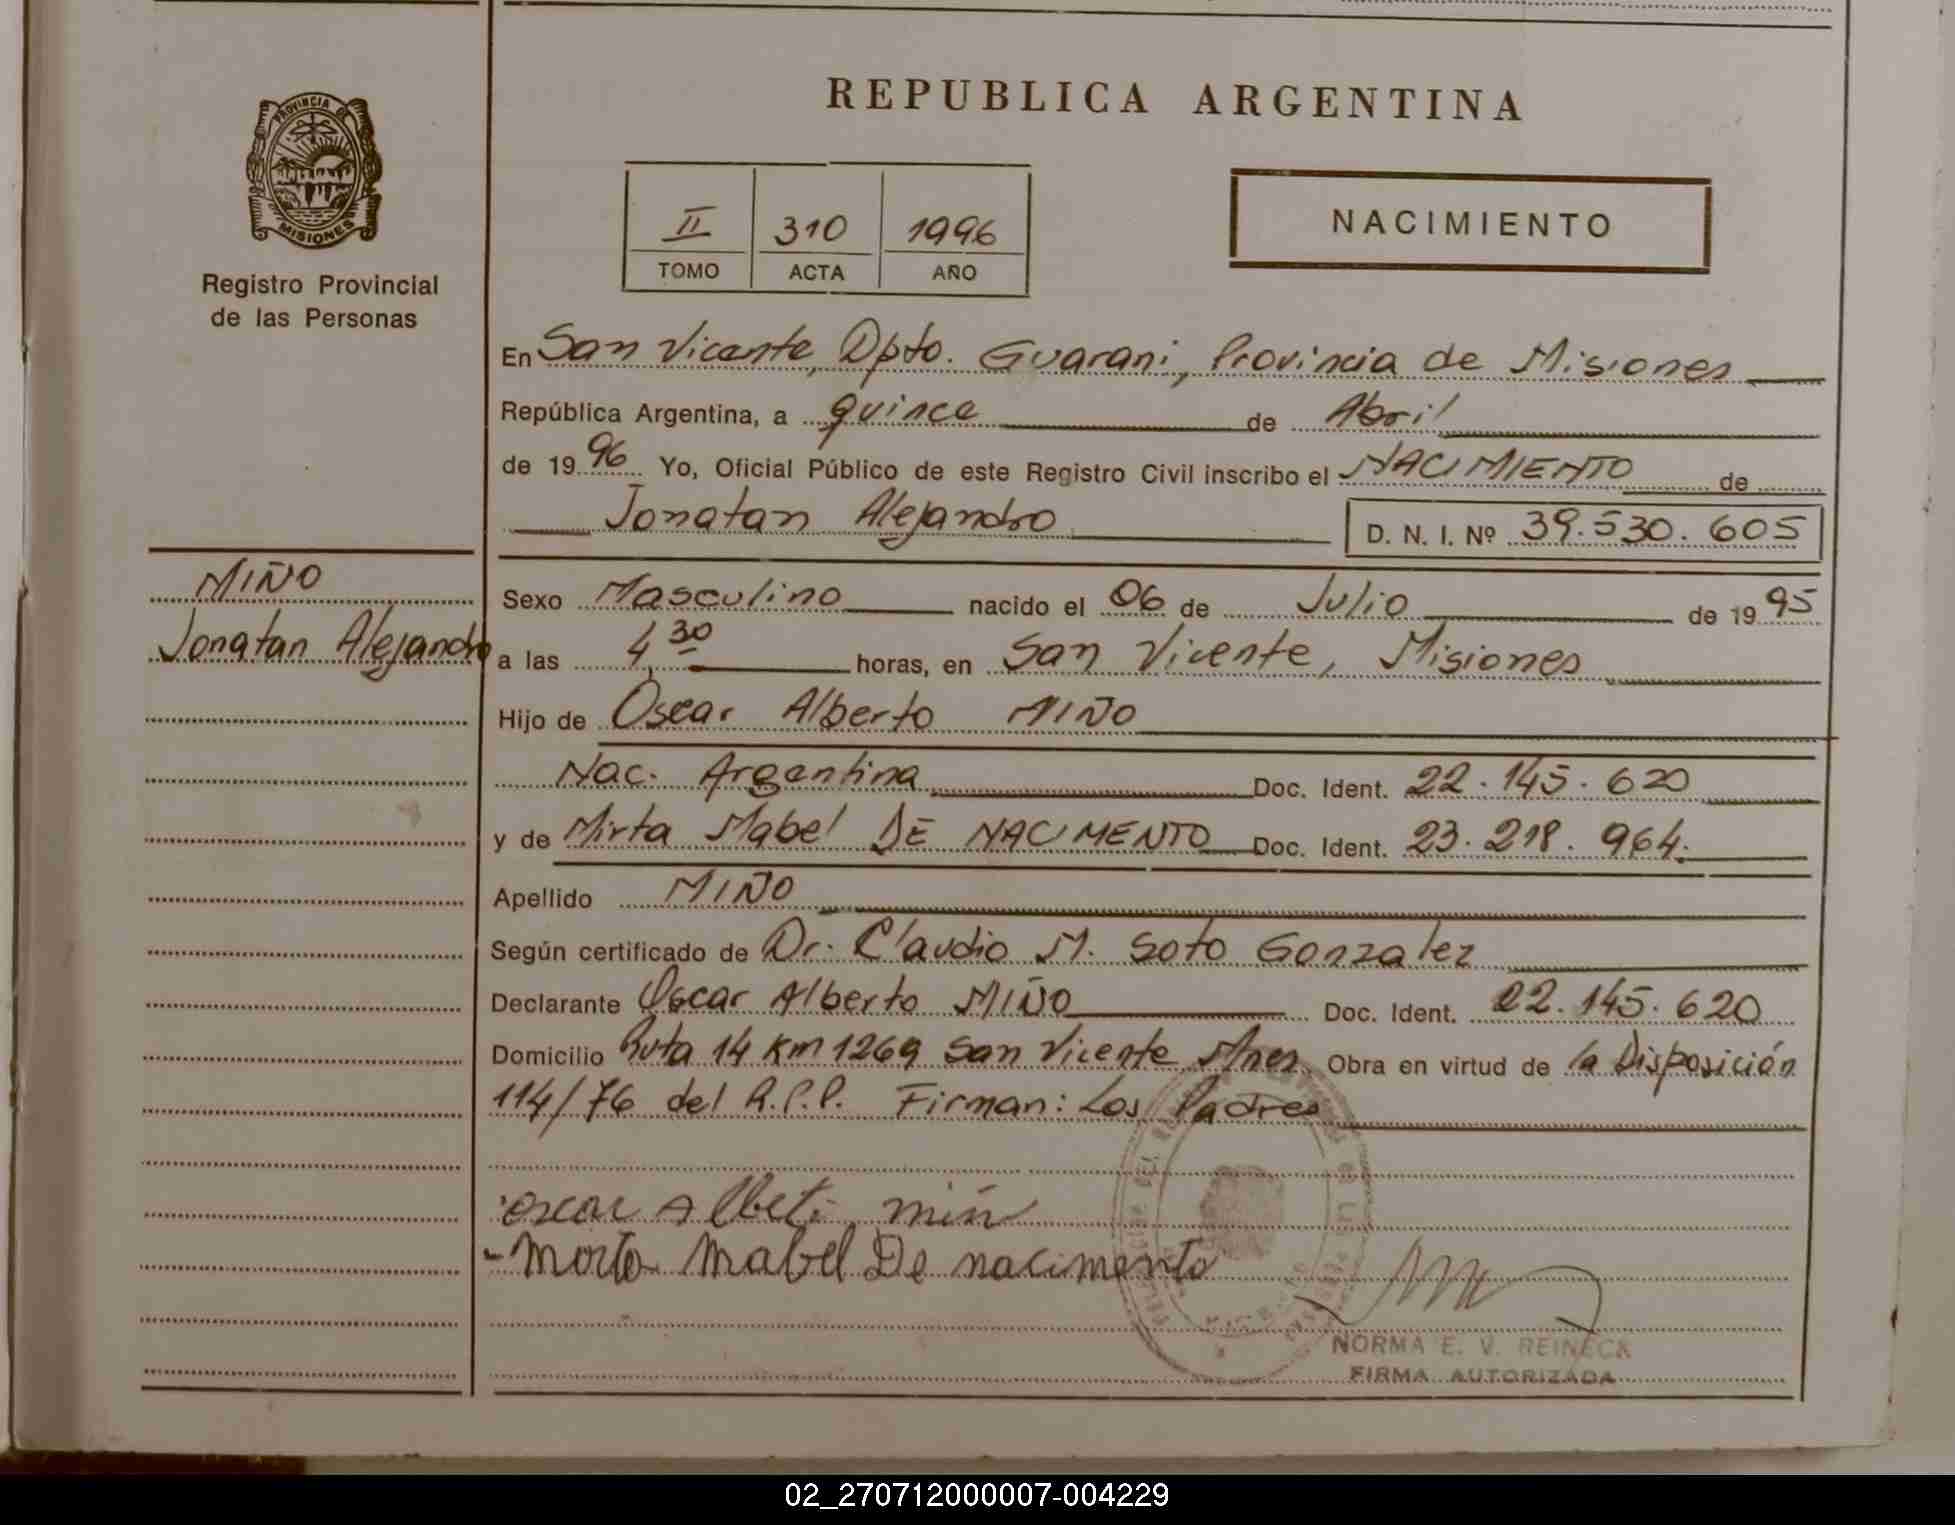 REPUBLICA ARGENTINA
PROVINCIA DE
MISIONES
Registro Provincial
de las Personas
II 310 1996
TOMO ACTA AÑO
NACIMIENTO
En San Vicente, Dpto. Guarani, Provincia de Misiones
República Argentina, a quince de Abril
de 19 96 Yo, Oficial Público de este Registro Civil inscribo el NACIMIENTO de
Jonatan Alejandro D. N. I. Nº 39.530.605
MIÑO
Jonatan Alejandro
Sexo Masculino nacido el 06 de Julio de 19 95
a las 4,30 horas, en San Vicente, Misiones
Hijo de Oscar Alberto MIÑO
Nac. Argentina Doc. Ident. 22.145.620
y de Mirta Mabel DE NACIMENTO Doc. Ident. 23.218.964.
Apellido MIÑO
Según certificado de Dr. Claudio M. Soto Gonzalez
Declarante Oscar Alberto MIÑO Doc. Ident. 22.145.620
Domicilio Ruta 14 Km 1269 San Vicente Mnes. Obra en virtud de la Disposición
114/76 del R.P.P. Firman: Los Padres
oscar Alberti miñ
- Morta Mabel De nacimento
NORMA E. V. REINECK
FIRMA AUTORIZADA
02_270712000007-004229